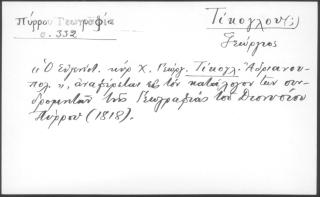 Πύρρου Γεωγραφία
σ. 332
Τίκογλου(;)
Γεώργιος
« Ὁ εὐγενέστ. κὺρ Χ. Γεώργ. Τίκογλ. Ἀδριανου-
πολ. », ἀναφέρεται εἰς τὸν κατάλογον τῶν συν-
δρομητῶν τῆς Γεωγραφίας τοῦ Διονυσίου
Πύρρου (1818).